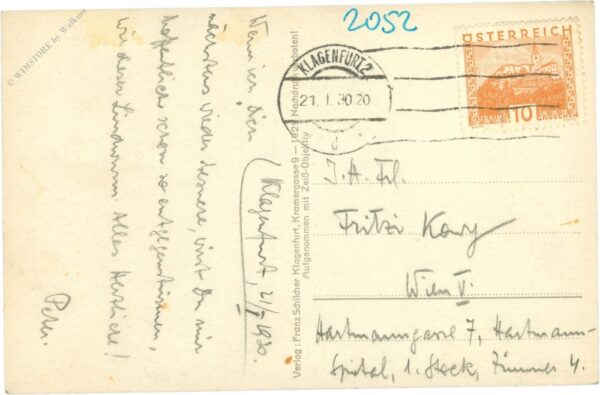 © WIMSTORE by Walkner
2052
ÖSTERREICH
10
GROSCHEN
KLAGENFURT 2
21. I. 30. 20
Klagenfurt, 21/I 1930.
Wenn ich Dich
nächstens wieder besuche, wirst Du mir
hoffentlich schon so entgegenkommen,
wie dieser Lindwurm. Alles Herzliche!
Peter.
Verlag: Franz Schilcher Klagenfurt, Kramergasse 9 — Nachdruck verboten!
Aufgenommen mit Zeiß-Objektiv
Fritzi
Wien V.
Hartmanngasse 7, Hartmann-
Spital, 1. Stock, Zimmer 4.